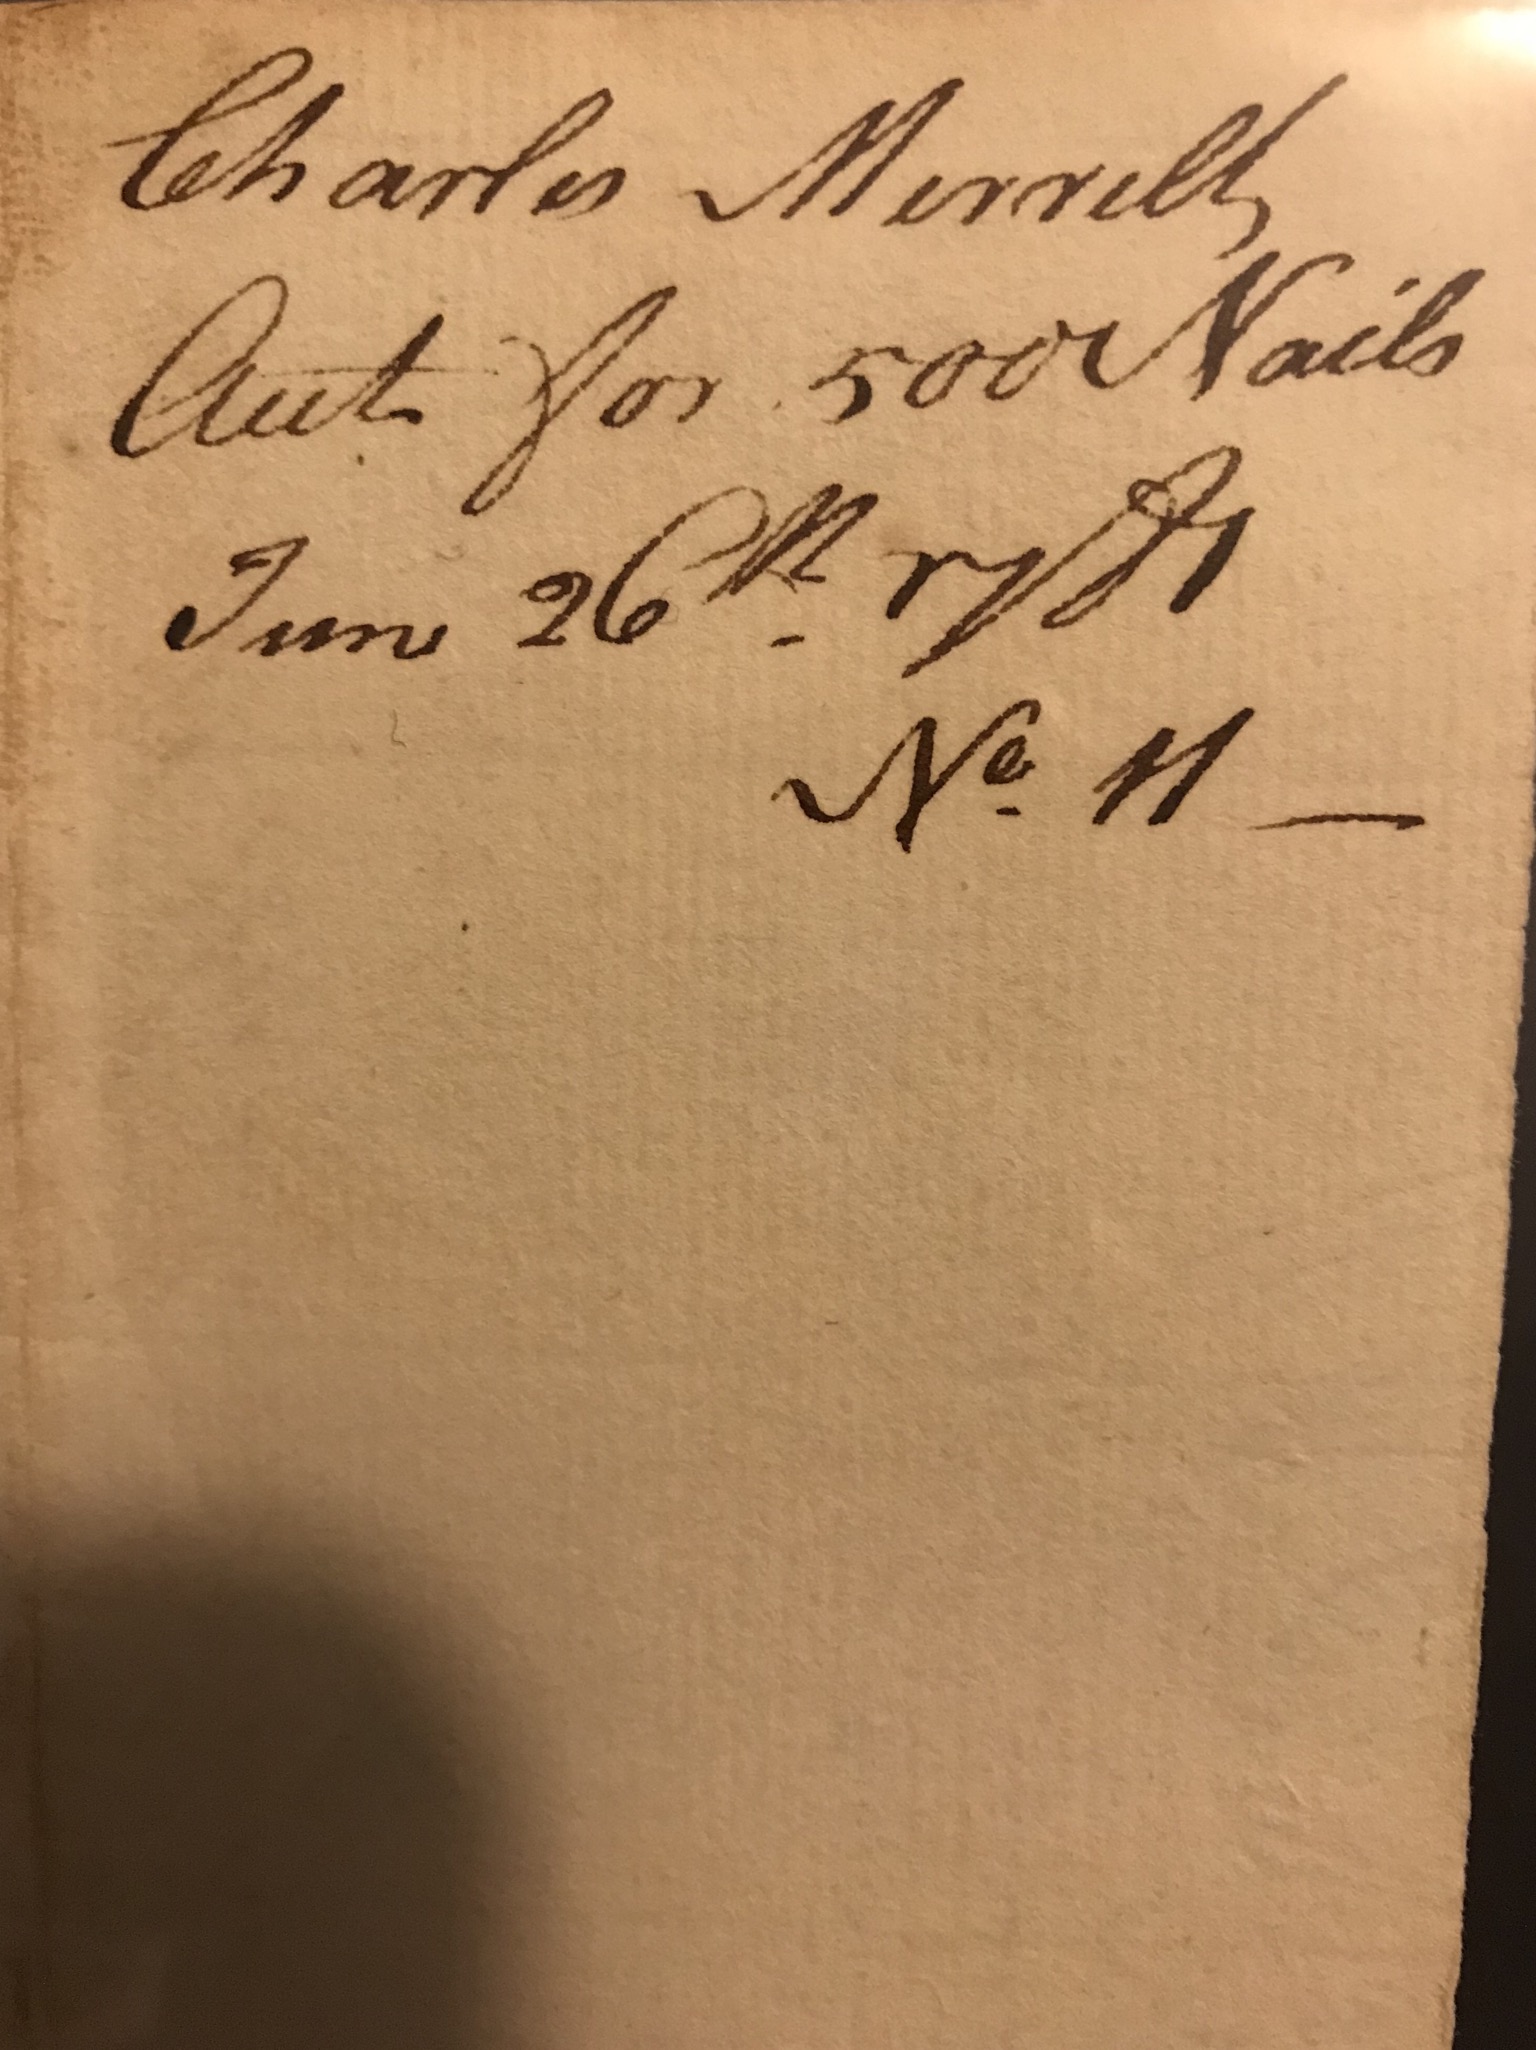 Charles Merrill,
Acct for 500 Nails
June 26th 1781
No 11 —